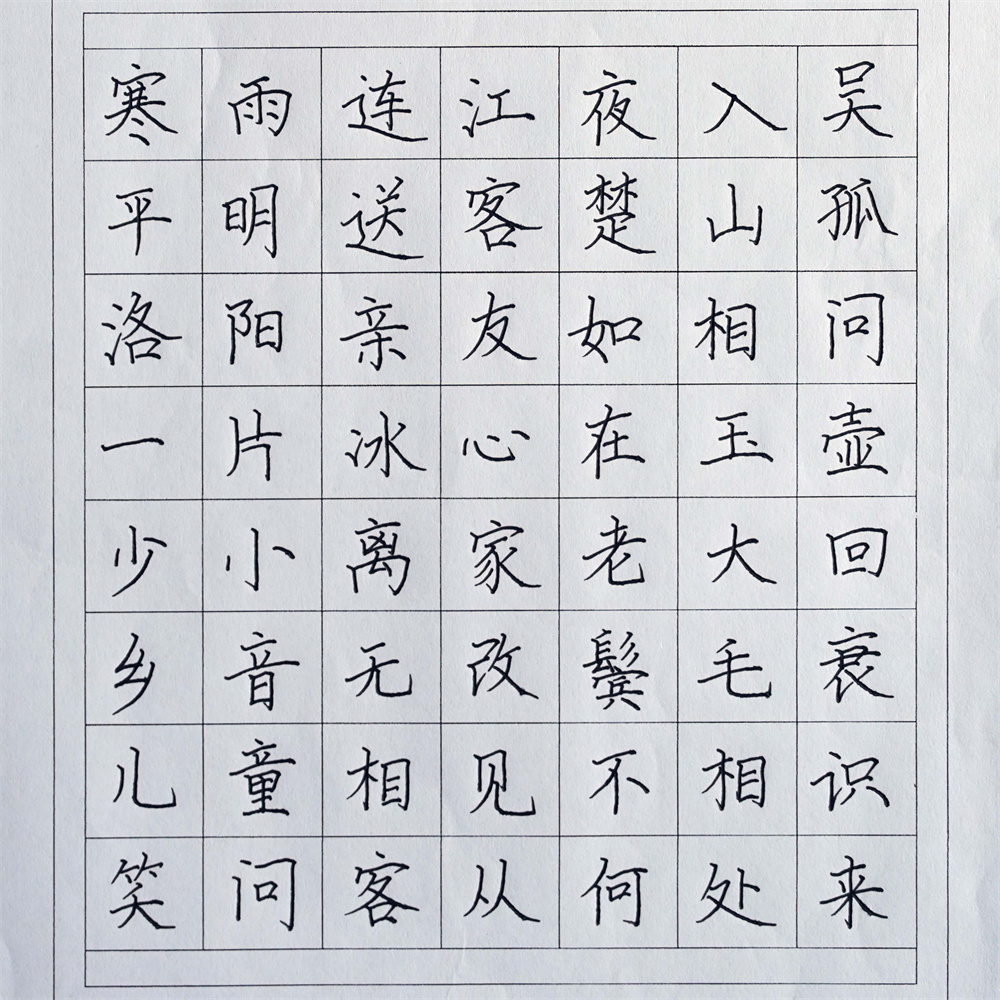 寒雨连江夜入吴
平明送客楚山孤
洛阳亲友如相问
一片冰心在玉壶
少小离家老大回
乡音无改鬓毛衰
儿童相见不相识
笑问客从何处来